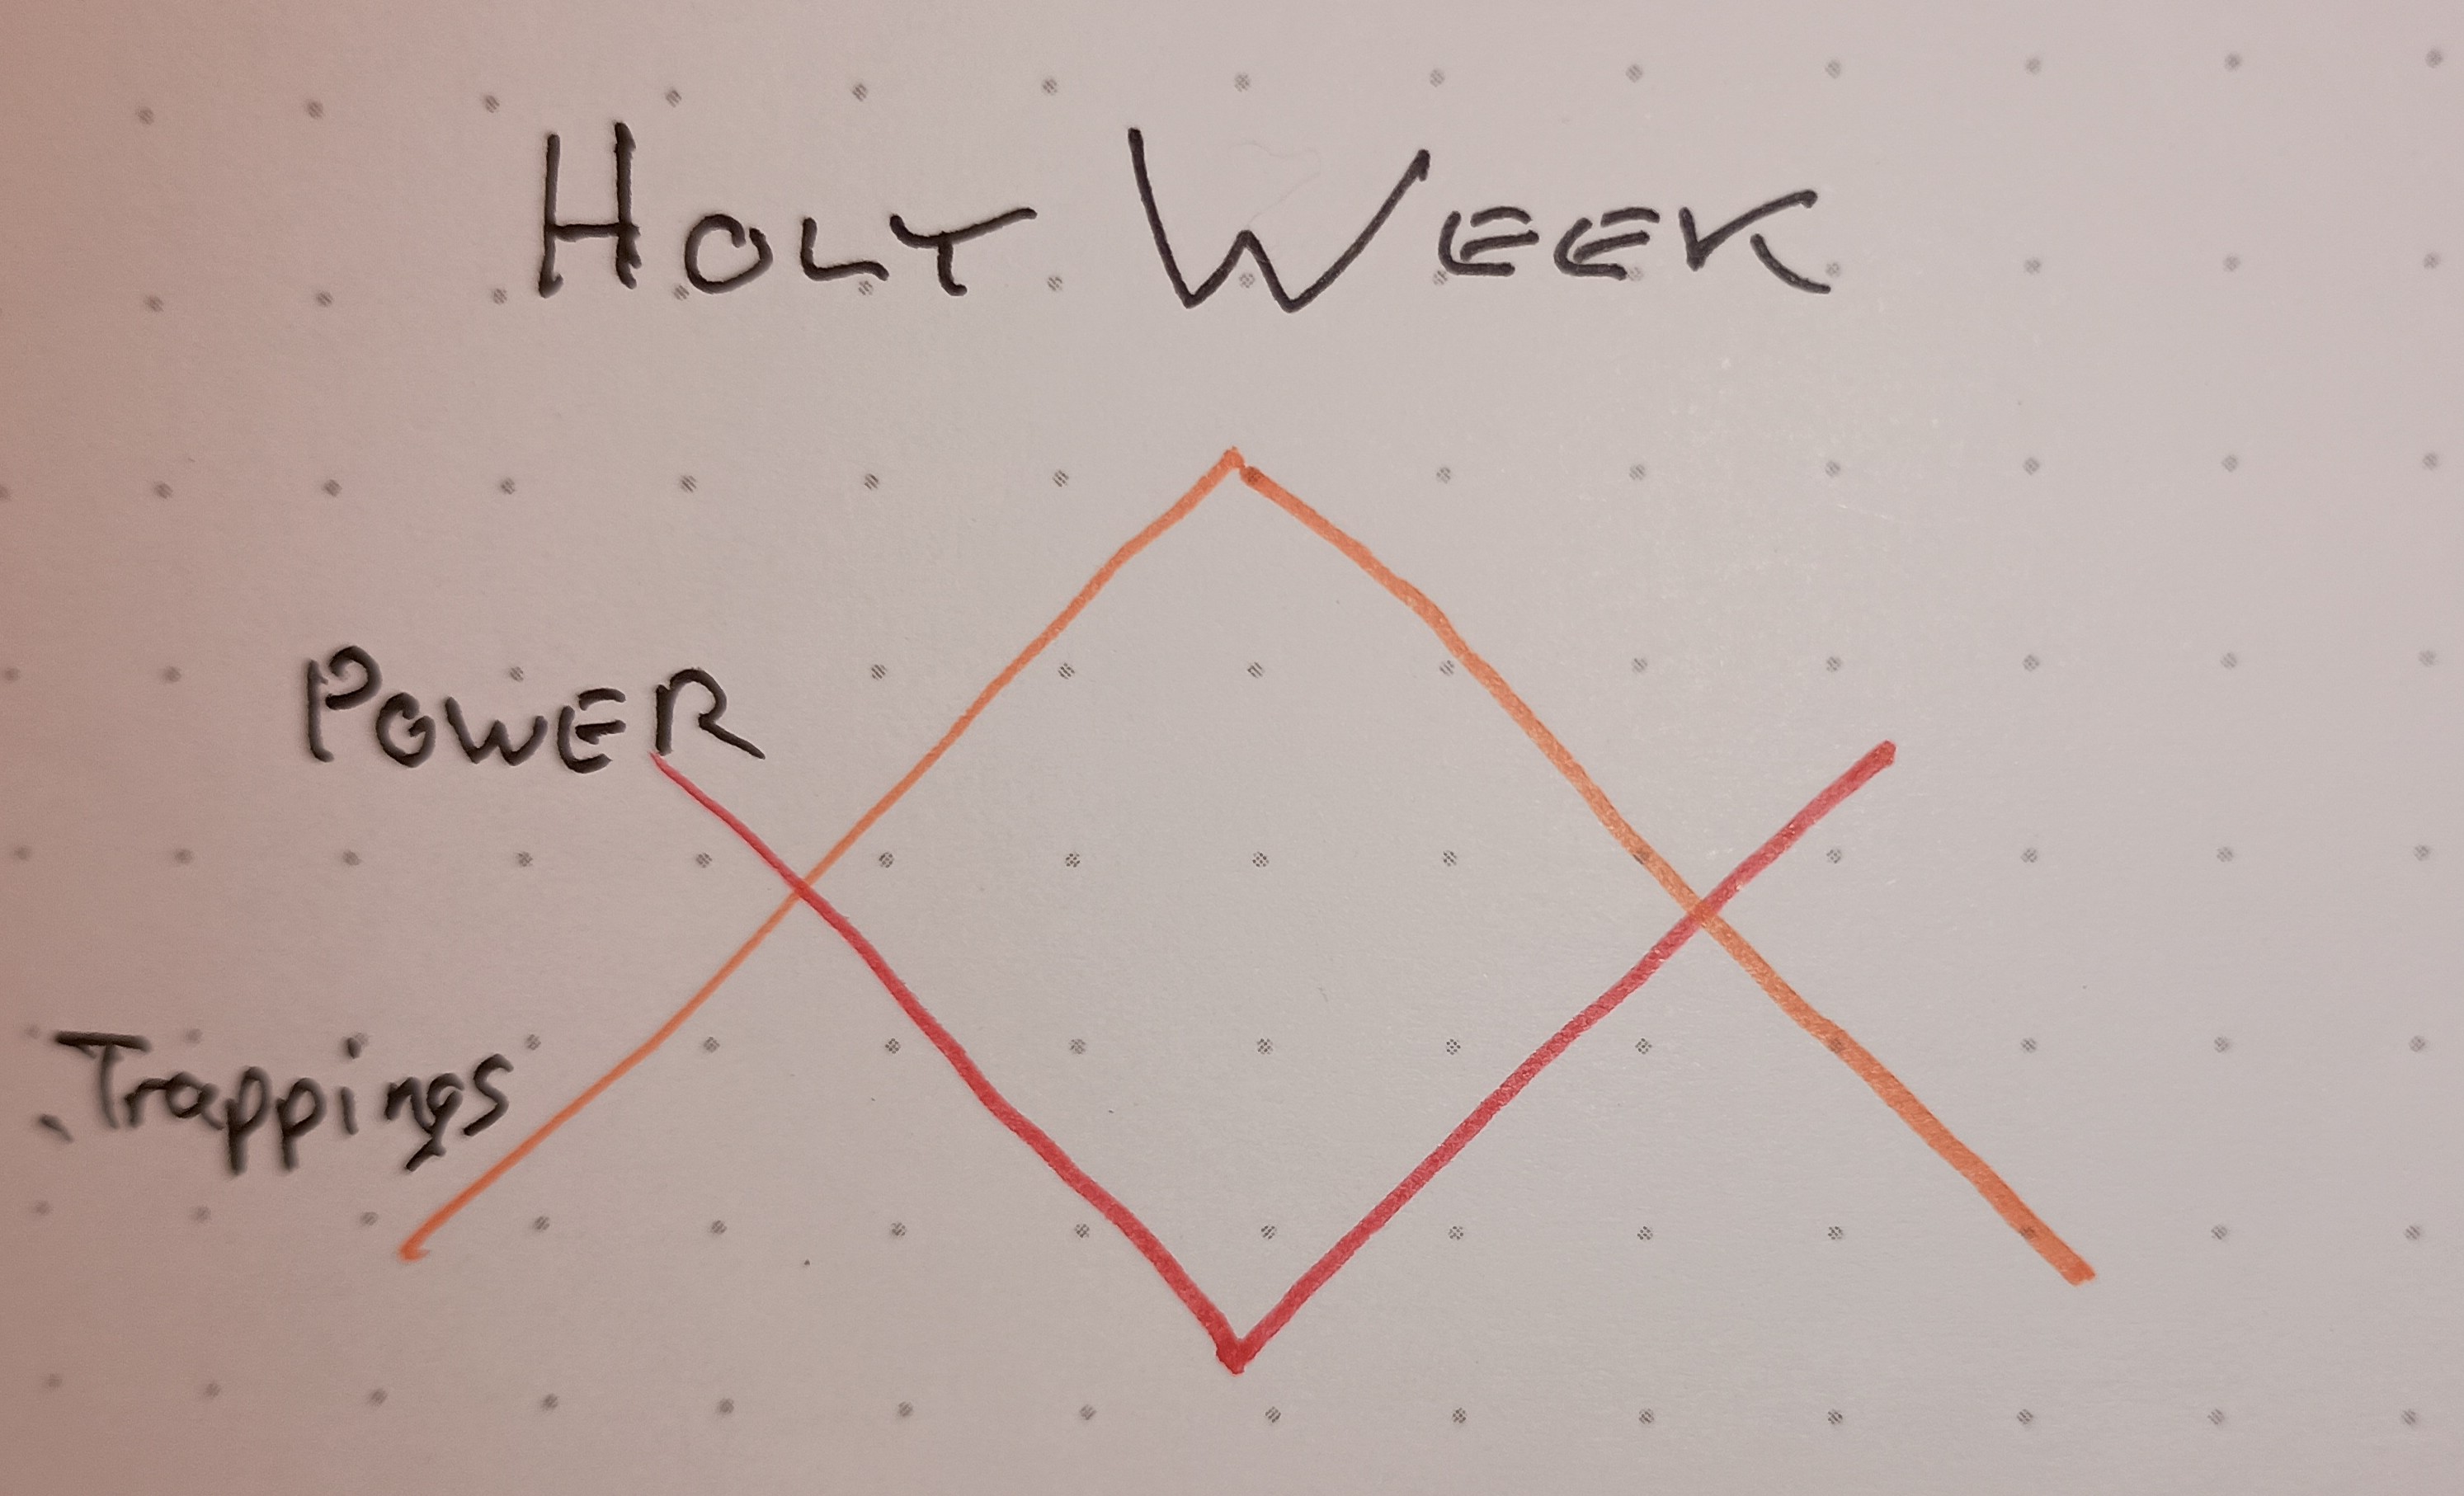 HOLY WEEK
POWER
Trappings